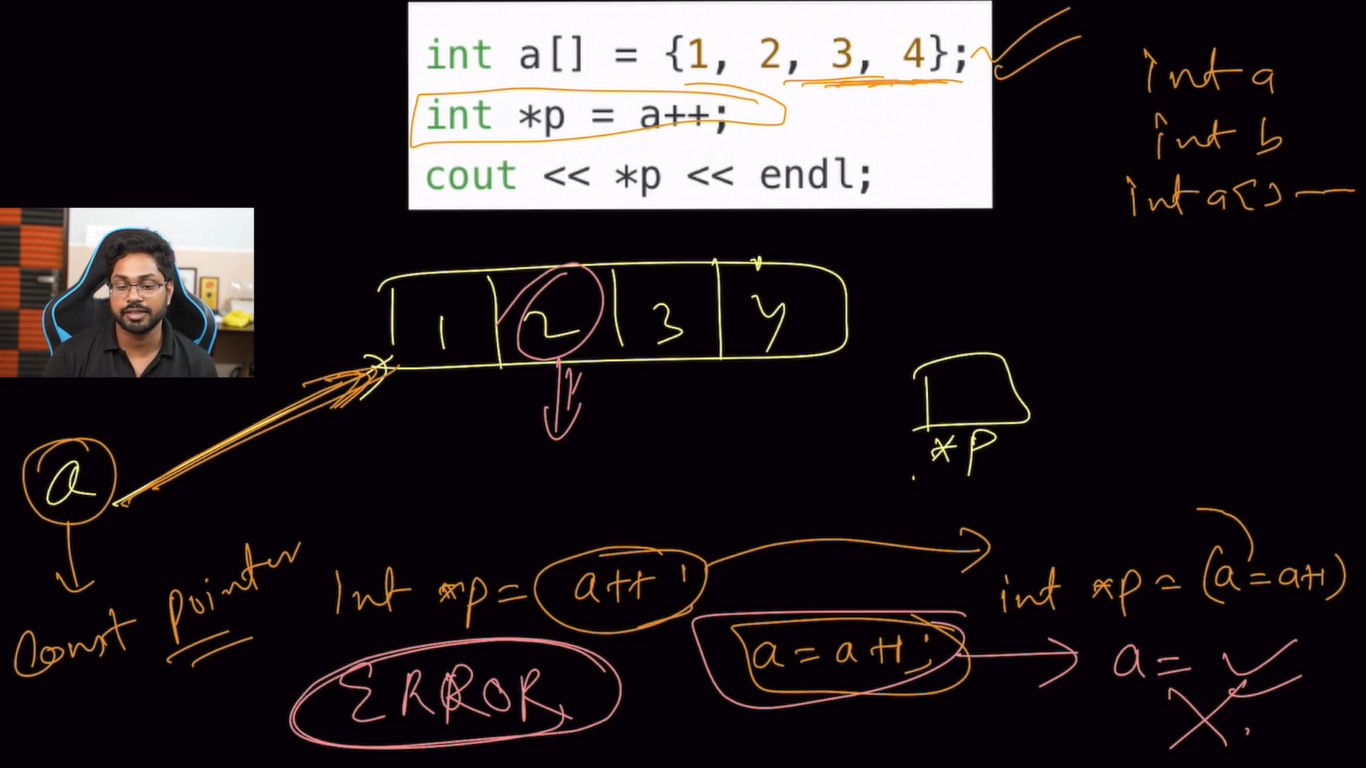 int a[] = {1, 2, 3, 4};
int *p = a++;
cout << *p << endl;
int a
int b
int a[]
1 2 3 4
*p
a
const pointer
Int *p = a++;
int *p = (a = a+1)
a = a+1;
a =
ERROR